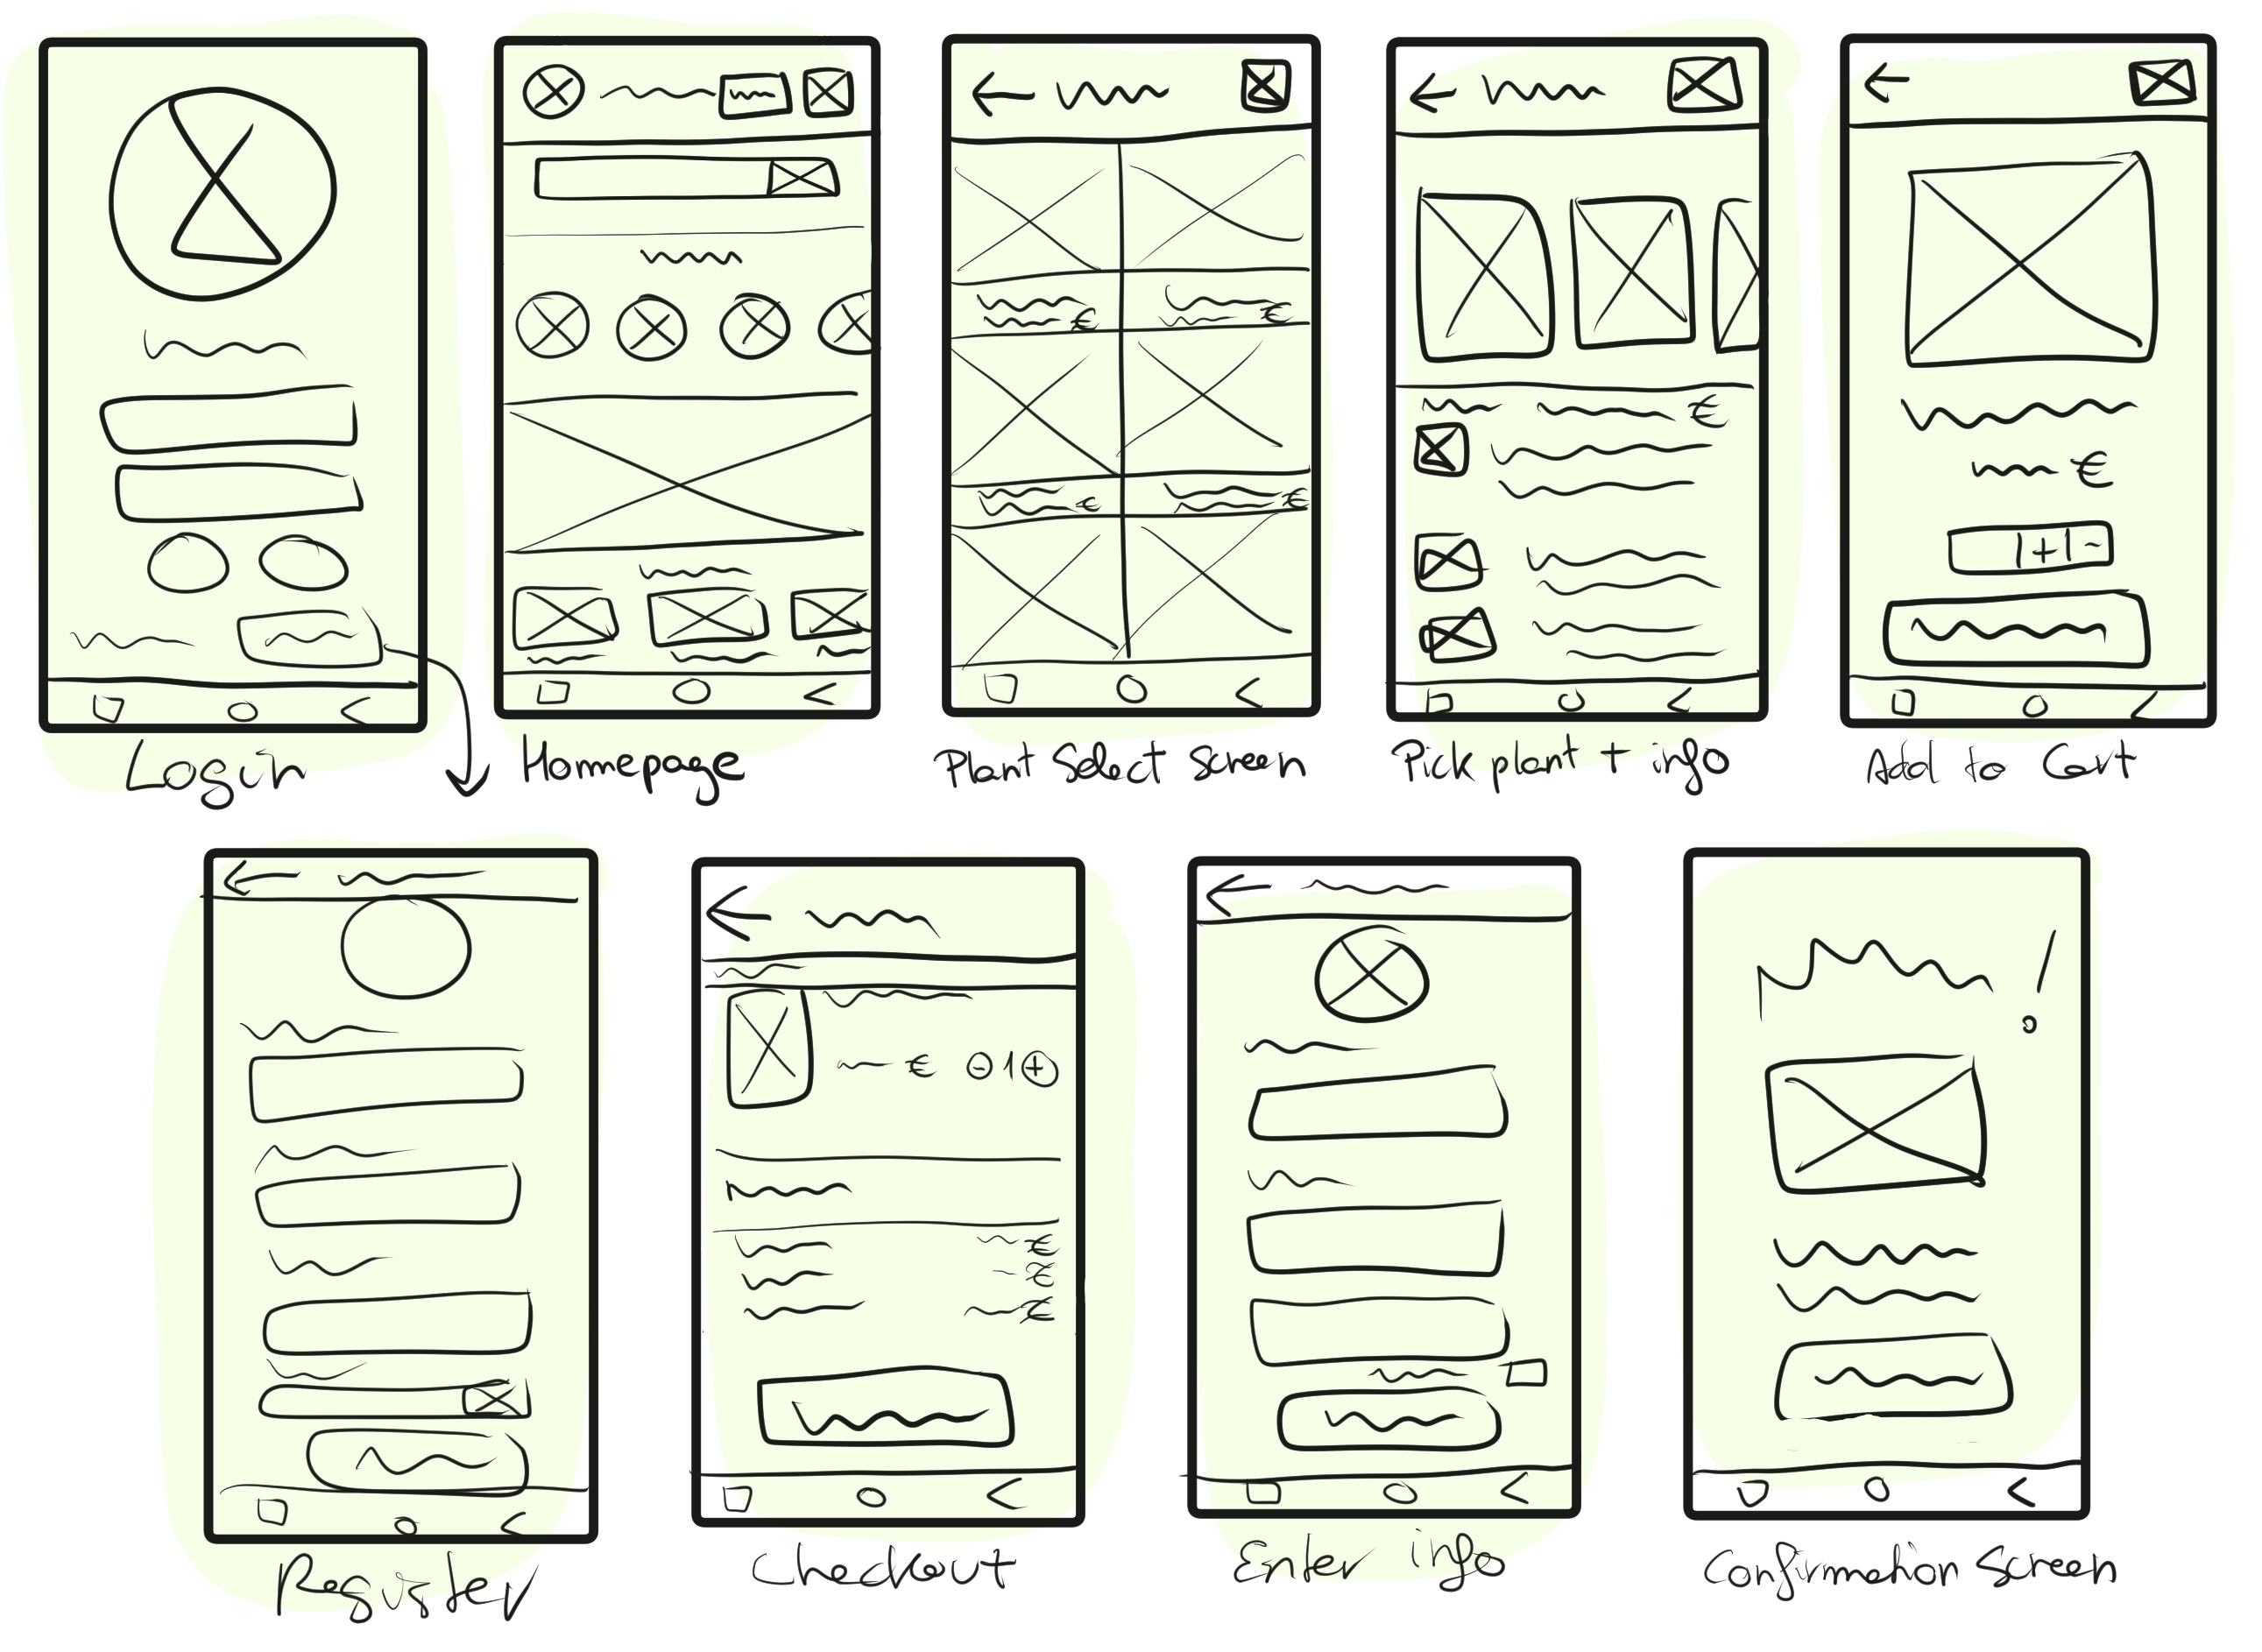 Login
Homepage
Plant Select Screen
Pick plant + info
Add to Cart
€ €
€ €
€
€
+ -
Register
Checkout
Enter info
Confirmation Screen
€ - 1 +
€
€
€